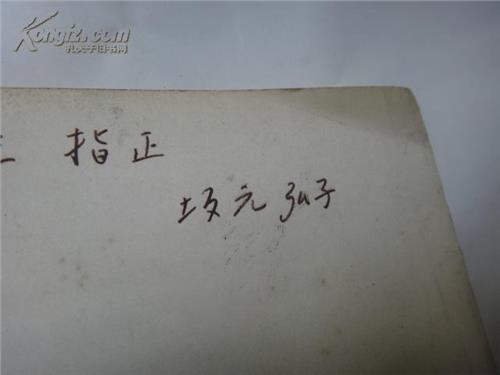 Kongfz.com
孔夫子旧书网
指正
坂元弘子